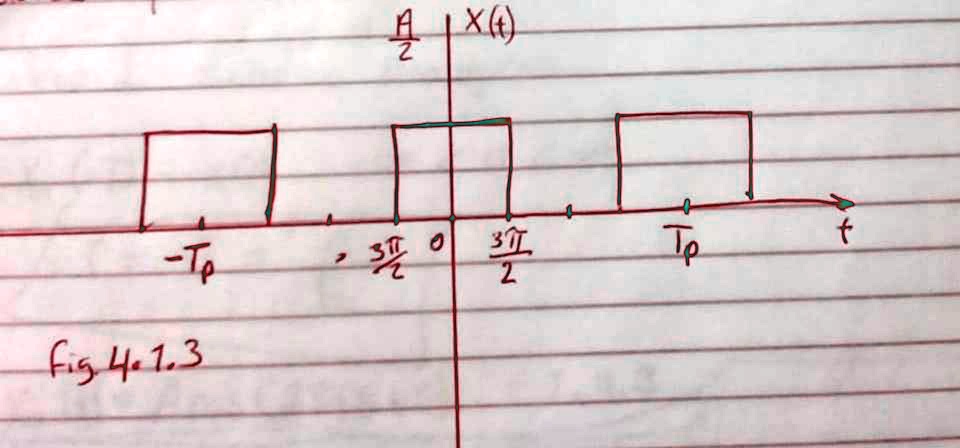 A/2 X(t)
-Tp - 3π/2 0 3π/2 Tp t
fig. 4.1.3